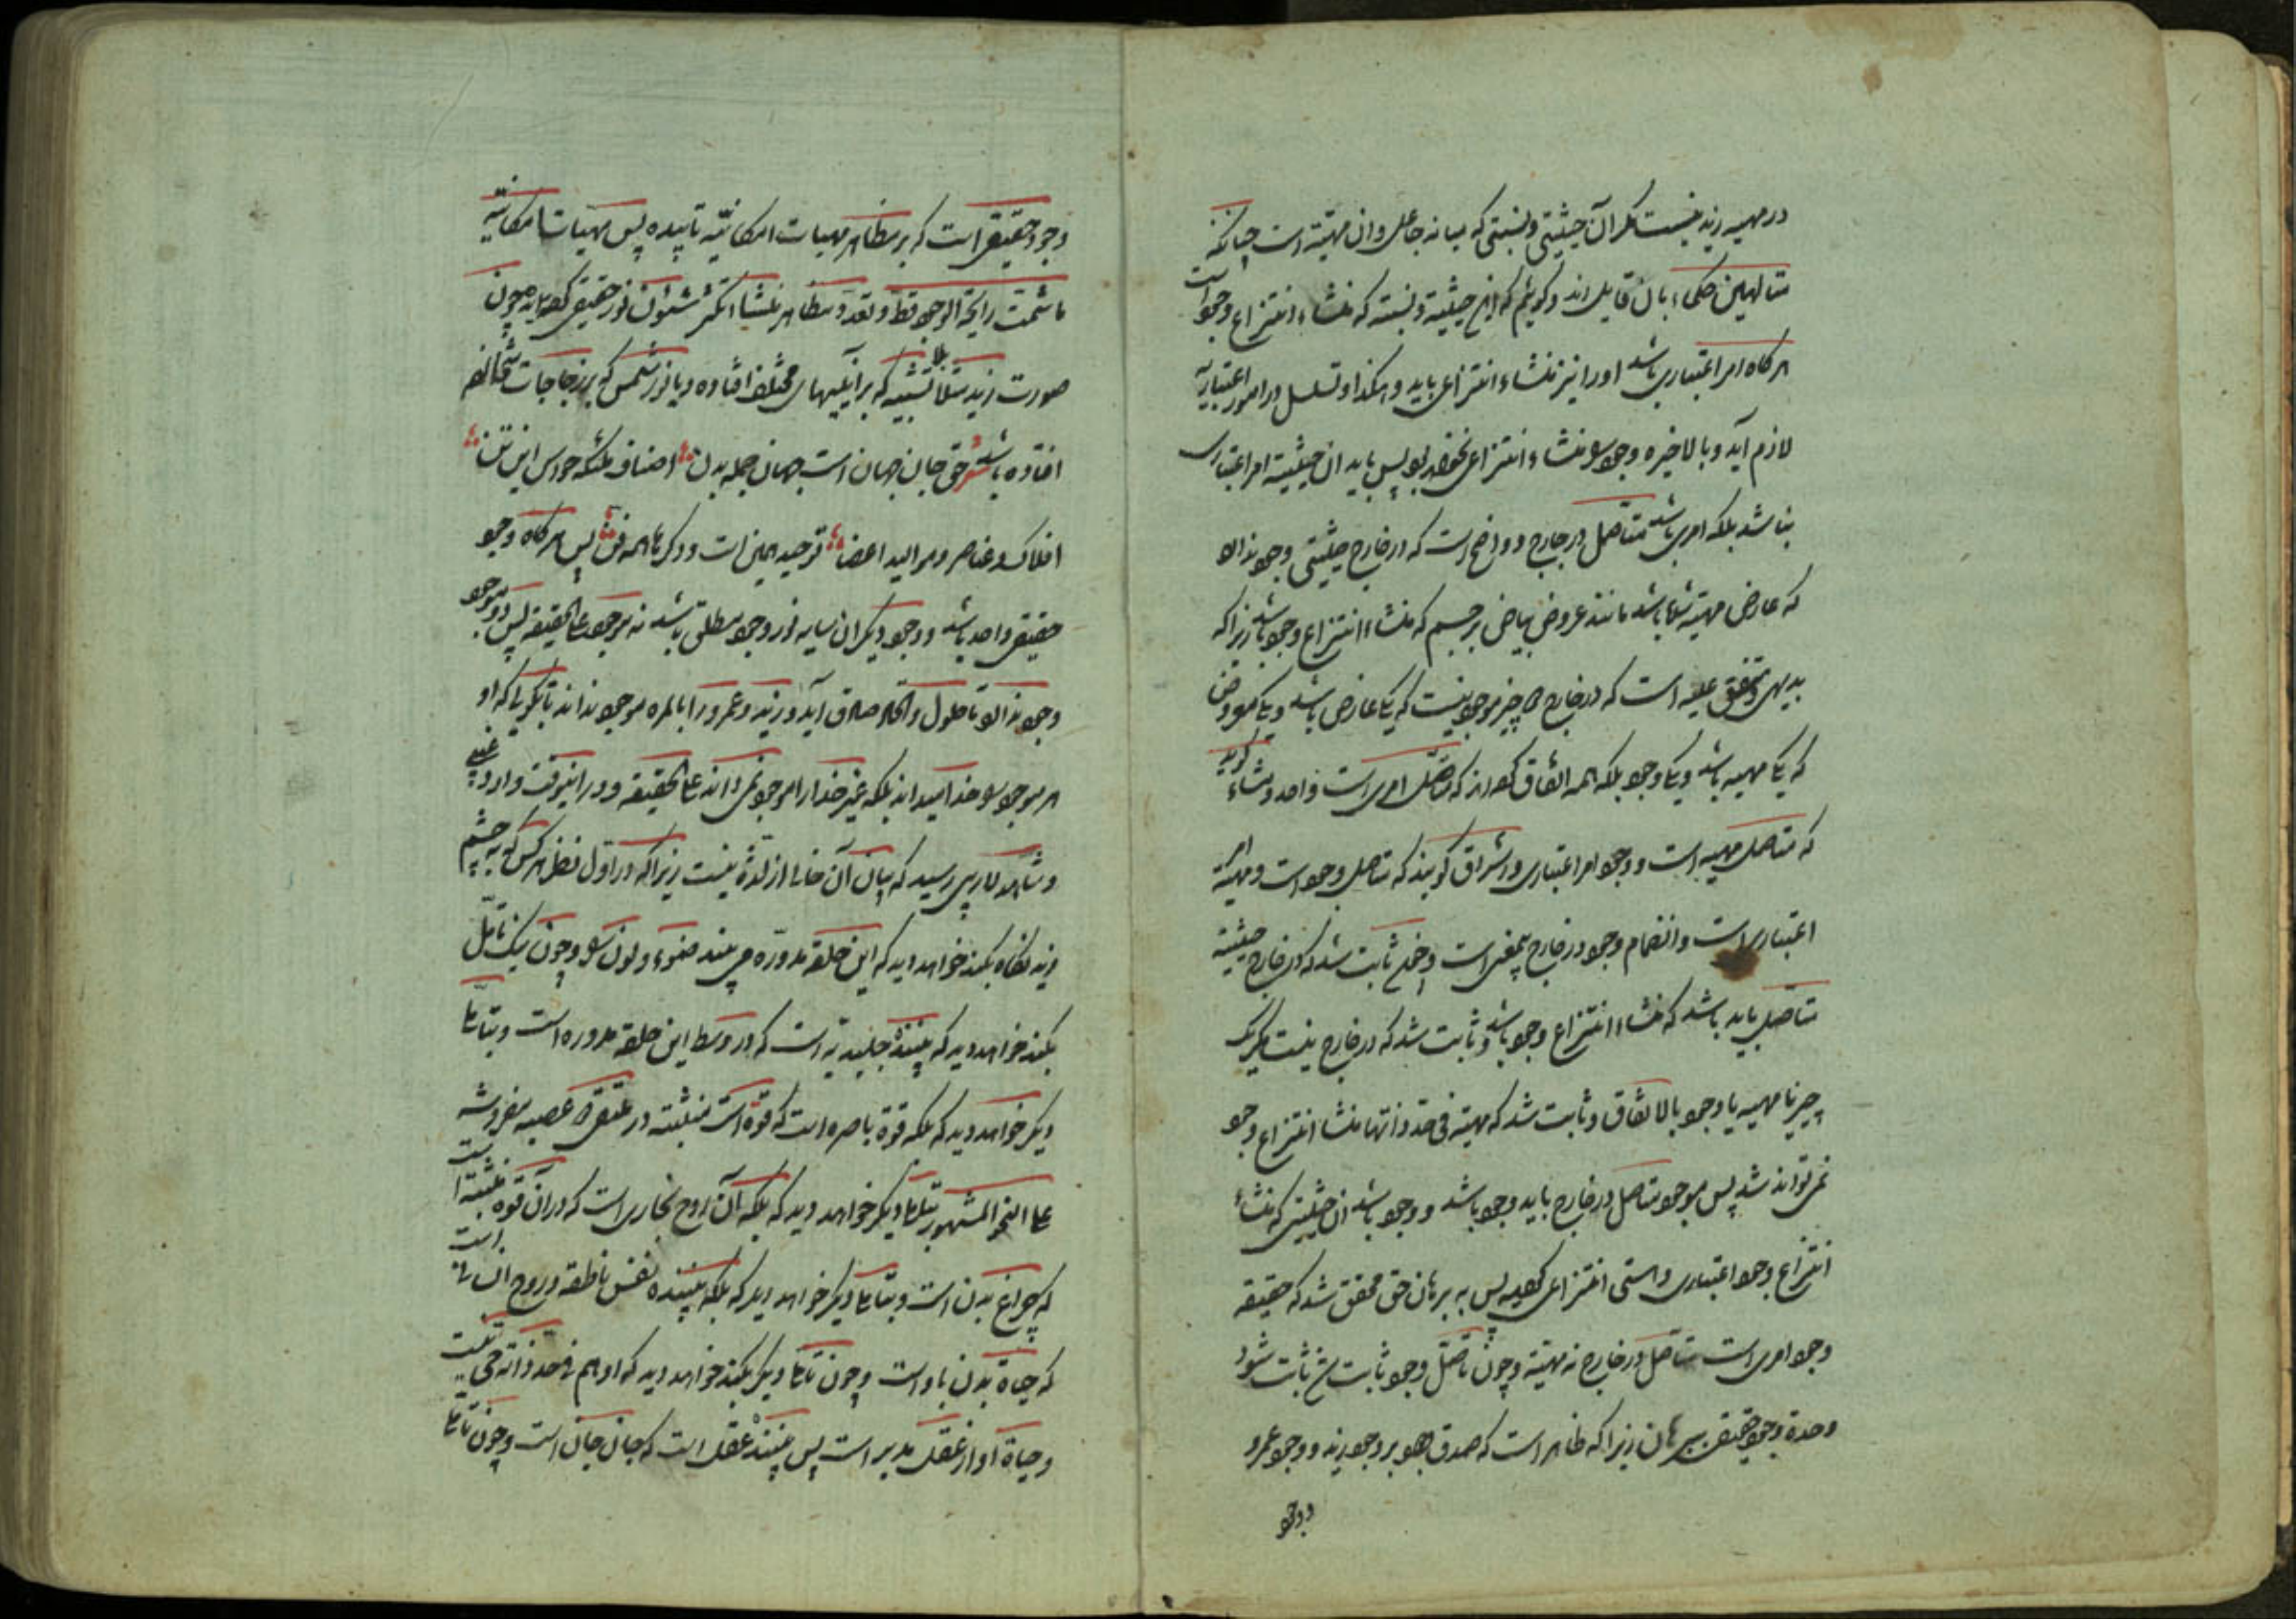 در مهیه زید نیست مکر آن حیثیتی و نسبتی که میانه جاعل و ان مهیته است چنانکه
متالهین حکماء بان قایل اند و کوئیم که این حیثیة و نسبته که منشاء انتزاع وجود است
هرکاه امر اعتباری باشد او را نیز منشاء انتزاعی باید و هکذا و تسلسل در امور اعتباریه
لازم آید و بالاخره وجود و منشاء انتزاعی نخواهد بود پس باید ان حیثیة امر اعتباری
نباشد بلکه امری باشد متاصل در خارج و واضح است که در خارج حیثیتی وجود ندارد
که عارض مهیته باشد مانند عروض بیاض بر جسم که منشاء انتزاع وجود باشد زیرا که
بدیهی و متفق علیه است که در خارج دو چیز موجود نیست که یکی عارض باشد و یکی معروض
که یکی مهیه باشد و یکی وجود بلکه همه اتفاق کرده اند که متاصل امری است واحد و مشاء گوید
که متاصل مهیه است و وجود امر اعتباری و اشراق کویند که متاصل وجود است و مهیته امر
اعتباری است و انضمام وجود در خارج بیمعنی است واضح ثابت شد که در خارج حیثیة
متاصل باید باشد که منشاء انتزاع وجود باشد و ثابت شد که در خارج نیست مکر یک
چیز یا مهیه یا وجود بالاتفاق و ثابت شد که مهیته فی حد ذاتها منشا انتزاع وجود
نمی تواند شد پس موجود متاصل در خارج باید وجود باشد و وجود باشد ان حیثیتی که منشاء
انتزاع وجود اعتباری و هستی انتزاعی کردید پس به برهان حق محقق شد که حقیقه
وجود امری است متاصل در خارج نه مهیته و چون تاصل وجود ثابت شد ثابت شود
وحدة وجود حقیقی ببرهان زیرا که ظاهر است که صدق وجود بر وجود زید و وجود عمرو
و وجود
وجود حقیقی است که بر مظاهر مهیات امکانیه تابیده پس مهیات امکانیه
ما شمت رایحة الوجود قط و تعدد مظاهر منشا تکثر شئون نور حقیقی کردیده چون
صورت زید مثلا بلا تشبیه که بر آیینهای مختلف افتاده و یا نور شمس که بر زجاجات مختلفه
افتاده باشد شعر حق جان جهان است جهان جمله بدن اصناف ملئکه حواس این تن
افلاک و عناصر و موالید اعضا توحید همین است و دکرها همه فن پس هرکاه وجود
حقیقی واحد باشد و وجود دیکران سایه نور وجود مطلق باشد نه موجود علی الحقیقه پس دو موجود
وجود ندارد تا حلول و اتحاد صادق آید و زید و عمرو را بالمره موجود نداند تا بگوید که او
هر موجود را خدا میداند بلکه غیر خدا را موجود نمی داند علی الحقیقه و در اینوقت وارد غیبی
و شاهد لاریبی رسید که بیان آن خالی از لذة نیست زیرا که در اول نظر هر کس که به چشم
زید نکاه بکند خواهد دید که این حلقه مدوره می بیند ضوء و لون را و چون یک تامل
بکند خواهد دید که بیننده جلیدیه است که در وسط این حلقه مدوره است و بتامل
دیکر خواهد دید که بلکه قوة باصره است که قوة است منبثه در ملتقی دو عصبه مفروشه
علی النحو المشهور بتامل دیکر خواهد دید که بلکه آن روح بخاری است که در آن قوة منبثه است
که چراغ بدن است و بتامل دیکر خواهد دید که بلکه بیننده نفس ناطقه و روح انسانی است
که حیاة بدن باو است و چون تامل دیکر بکند خواهد دید که او هم فی حد ذاته حی نیست
و حیاة او از عقل مدبر است پس بیننده عقل است که جان جان است و چون تامل